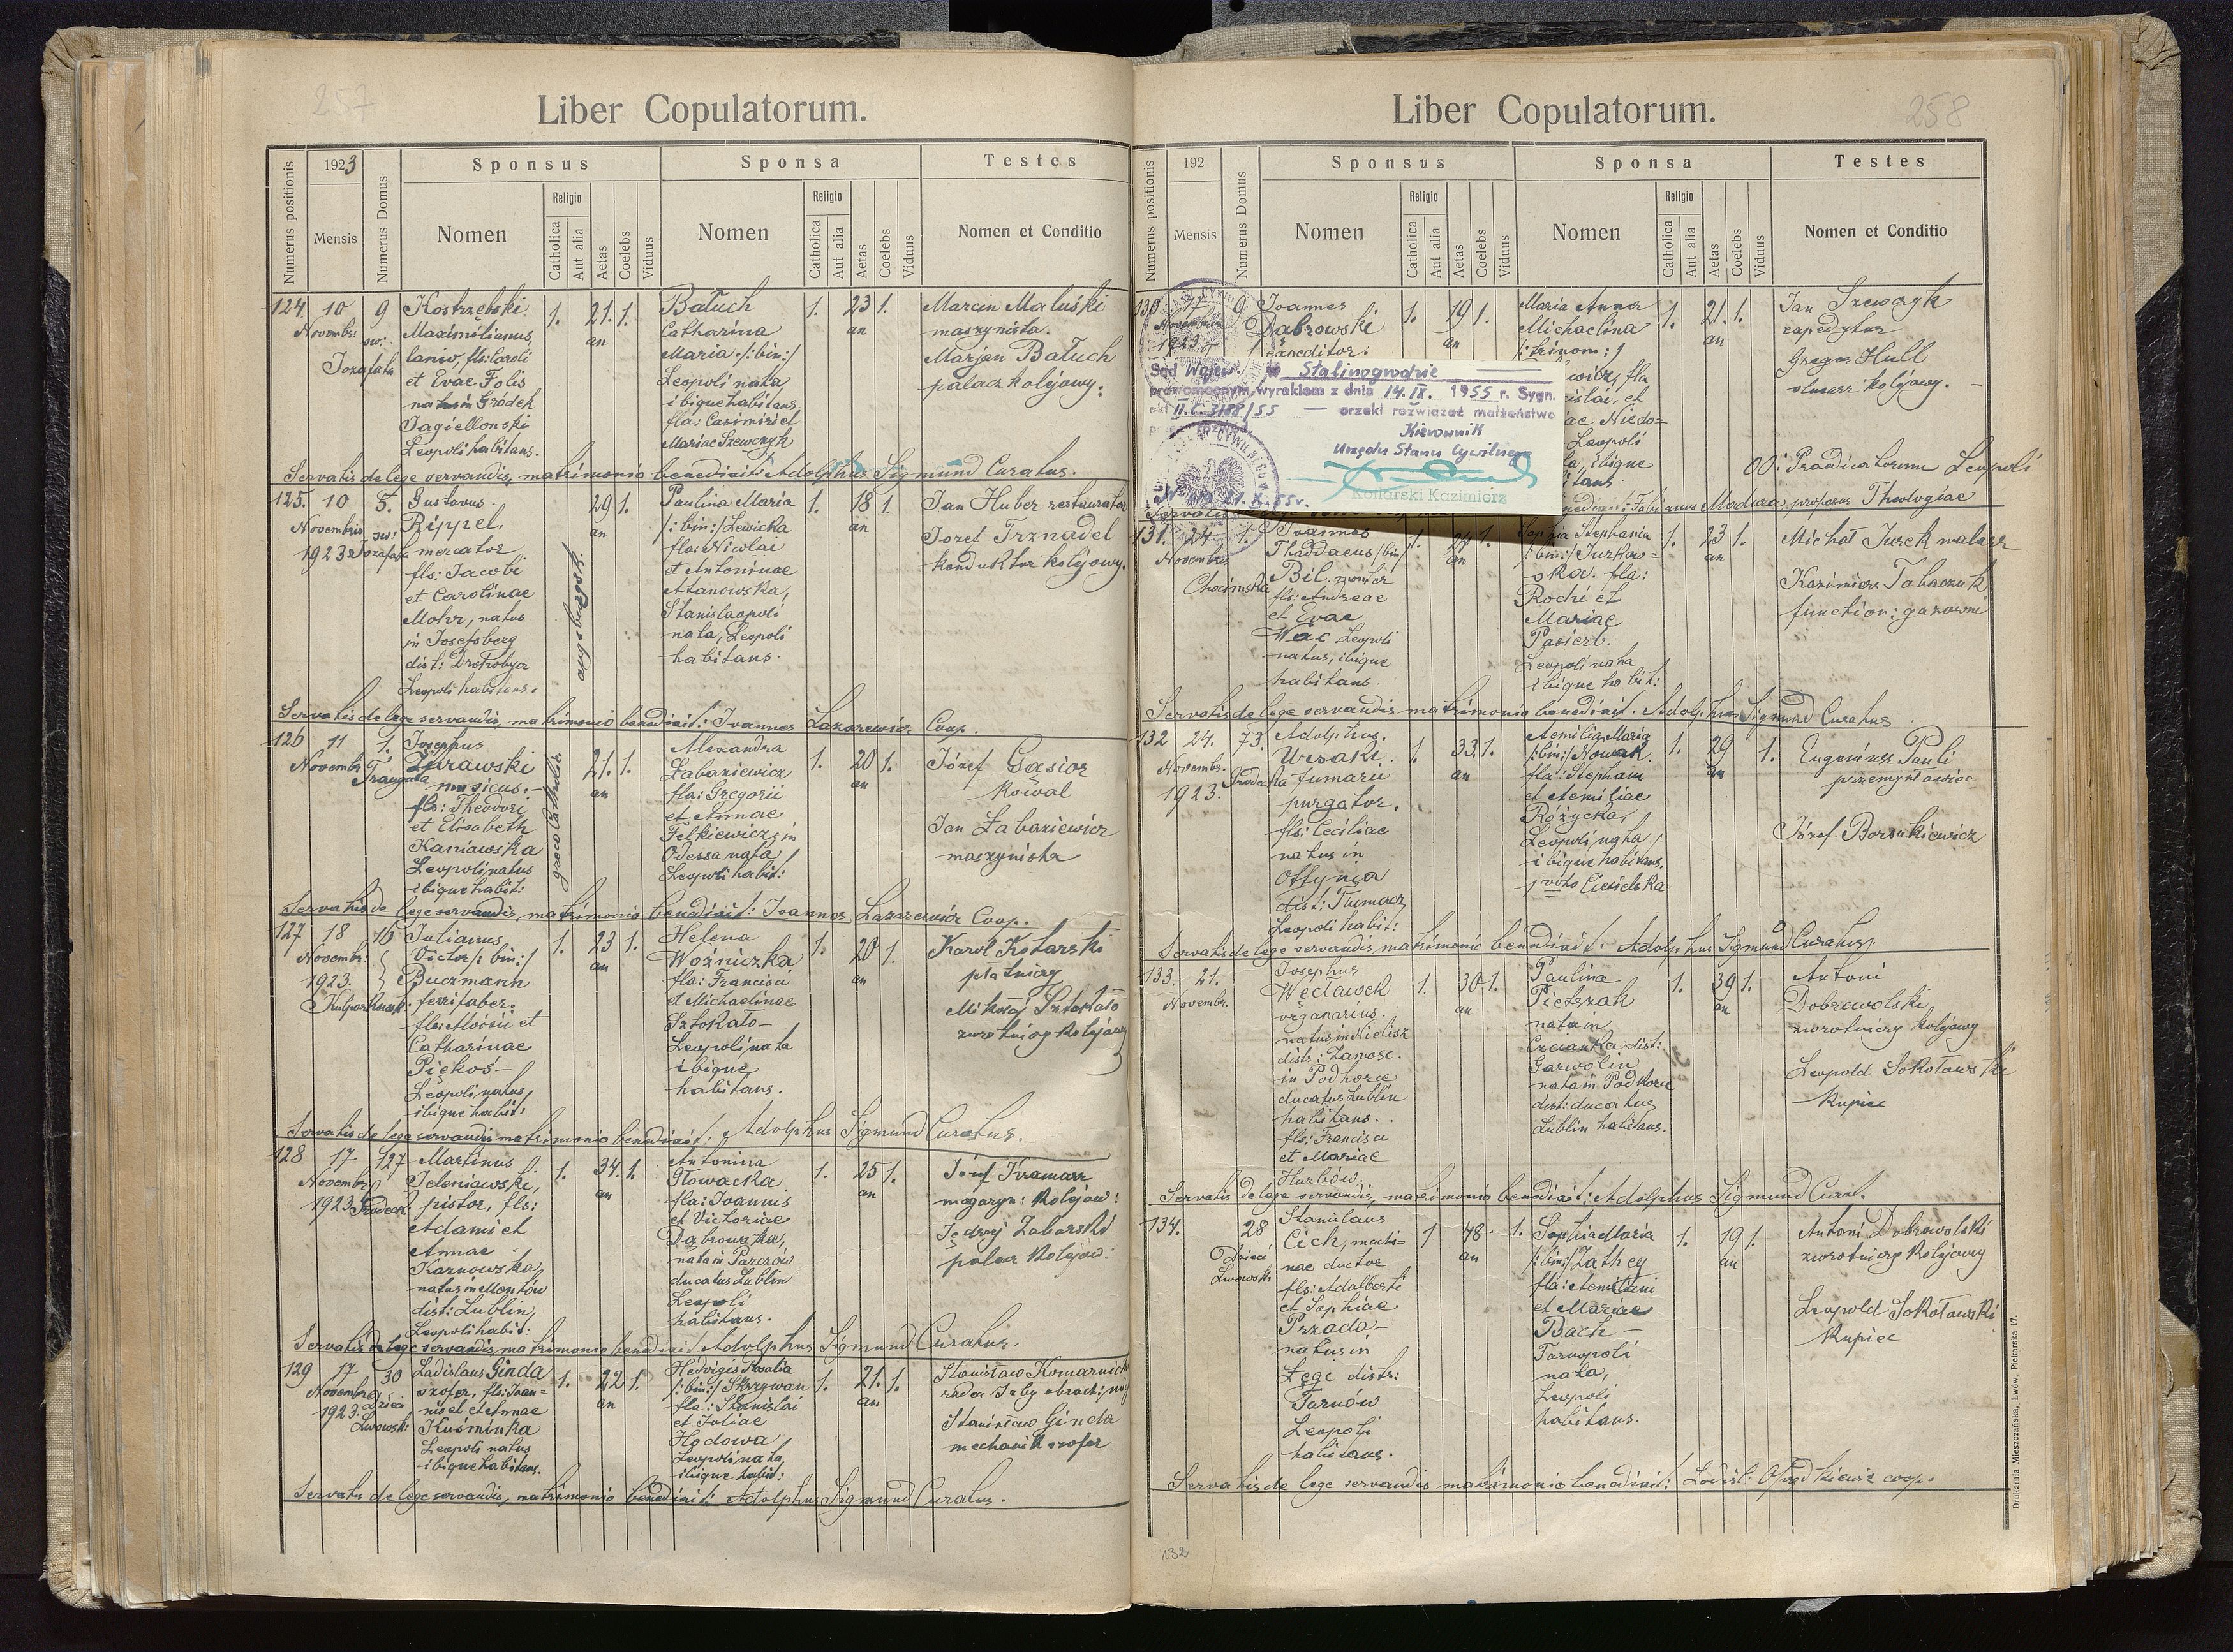 257
Liber Copulatorum.
Numerus positionis
1923
Mensis
Numerus Domus
Sponsus
Nomen
Religio
Catholica
Aut alia
Aetas
Coelebs
Viduus
Sponsa
Nomen
Religio
Catholica
Aut alia
Aetas
Coelebs
Viduns
Testes
Nomen et Conditio
124
10
Novembr:
9
św:
Jozafata
Kostrzebski
Maximilianus,
lanio, fls: Caroli
et Evae Folis
natus in Gródek
Jagiellonski
Leopoli habitans.
1.
21.
an
1.
Batuch
Catharina
Maria /:bin:/
Leopoli nata
ibique habitans.
fla: Casimiri et
Mariae Szewczyk
1.
23
an
1.
Marcin Maluśki
maszynista.
Marjan Batuch
palacz kolejowy.
Servatis de lege servandis, matrimonio benedixit: Adolphus Sigmund Curatus.
125.
10
Novembris
1923
5.
św:
Jozafata
Gustavus
Rippel
mercator
fls: Jacobi
et Carolinae
Mohr, natus
in Josefsberg
dist: Drohobycz
Leopoli habitans.
augsburgsk.
29
an
1.
Paulina Maria
/:bin:/ Lewicka
fla: Nicolai
et Antoninae
Atanowska,
Stanislaopoli
nata, Leopoli
habitans.
1.
18
an
1.
Jan Huber restaurator
Jozef Trznadel
konduktor kolejowy.
Servatis de lege servandis, matrimonio benedixit: Joannes Lazarewicz Coop.
126
11
Novembr
1.
Traugutta
Josephus
Żurawski
musicus.
fls: Theodori
et Elisabeth
Kaniawska
Leopoli natus
ibique habit:
graeco catholica
21.
an
1.
Alexandra
Łabaziewicz
fla: Gregorii
et Annae
Felkiewicz, in
Odessa nata,
Leopoli habit:
1.
20
an
1.
Józef Gąsior
kowal
Jan Łabaziewicz
maszynista
Servatis de lege servandis, matrimonio benedixit: Joannes Lazarewicz Coop.
127
18
Novembr:
1923.
16
Kulparkowsk.
Julianus
Victor /:bin:/
Buczmann
ferri faber.
fls: Aloisii et
Catharinae
Piękoś
Leopoli natus,
ibique habit:
1.
23
an
1.
Helena
Woźniczka
fla: Francisci
et Michaelinae
Sztokało
Leopoli nata
ibique
habitans.
1.
20
an
1.
Karol Kotarski
płatniczy
Mikołaj Sztokało
zwrotniczy kolejowy
Servatis de lege servandis matrimonio benedixit: Adolphus Sigmund Curatus.
128
17
Novembr
1923
127
Gródeck:
Martinus
Jeleniawski,
pistor, fls:
Adami et
Annae
Karnowska,
natus in Mentów
dist: Lublin,
Leopoli habit:
1.
34.
an
1.
Antonina
Głowacka
fla: Joannis
et Victoriae
Dąbrowska,
nata in Parczów
ducatus Lublin
Leopoli
habitans.
1.
25
an
1.
Józef Kramarz
magazyn: kolejow:
Jędrzej Zaborski
palacz kolejow.
Servatis de lege servandis, matrimonio benedixit Adolphus Sigmund Curatus.
129
17
Novembr
1923.
30
Dzieci
Lwowsk:
Ladislaus Ginda
szofer, fls: Joan=
nis et Annae
Kuśmińka
Leopoli natus
ibique habitans.
1.
22
an
1.
Hedvigis Rosalia
/:bin:/ Skrzywan
fla: Stanislai
et Juliae
Hodowa
Leopoli nata,
ibique habit:
1.
21.
an
1.
Stanisław Komarnicki
radca Izby obrach:
Stanisław Ginda
mechanik szofer
Servatis de lege servandis, matrimonio benedixit: Adolphus Sigmund Curatus.
258
Liber Copulatorum.
Numerus positionis
192
Mensis
Numerus Domus
Sponsus
Nomen
Religio
Catholica
Aut alia
Aetas
Coelebs
Viduus
Sponsa
Nomen
Religio
Catholica
Aut alia
Aetas
Coelebs
Viduus
Testes
Nomen et Conditio
130
17
Novembris
1923
9
Joannes
Dąbrowski
expeditor
1.
19
an
1.
Maria Anna
Michaelina
/:trinom:/
1.
21.
an
1.
Jan Szewczyk
expedytor
Gregor Hull
slusarz kolejowy.
Sąd Wojew. w Stalinogrodzie
prawomocnym wyrokiem z dnia 14.IX. 1955 r. Sygn.
akt II.C. 3188/55 — orzekł rozwiązać małżeństwo
Kierownik
Urzędu Stanu Cywilnego
Kollarski Kazimierz
Niedo=
Leopoli
ibique
OO. Praedicatorum Leopoli
Fabianus Madura professor Theologiae
131.
24
Novembr.
1.
Chocimska
Joannes
Thaddaeus /bin/
Bil. monter
fls: Andreae
et Evae
Wac Leopoli
natus, ibique
habitans.
1.
24
an
1.
Sophia Stephania
/:bin:/ Jurkow=
ska. fla:
Rochi et
Mariae
Pasierb.
Leopoli nata
ibique habit:
1.
23
an
1.
Michał Jurek malarz
Kazimierz Tabaczuk
function: gazowni
Servatis de lege servandis matrimonio benedixit. Adolphus Sigmund Curatus.
132
24.
Novembr.
1923.
73.
Grodecka
Adolphus
Ursaki,
fumarii
purgator.
fls: Ceciliae
natus in
Ottynia
dist: Tłumacz
Leopoli habit:
1.
33.
an
1.
Aemilia Maria
/:bin:/ Nowak.
fla: Stephani
et Aemiliae
Różycka,
Leopoli nata,
ibique habitans.
1 voto Ciesielska
1.
29
an
1.
Eugeniusz Pauli
przemysłowiec
Józef Borsukiewicz
Servatis de lege servandis matrimonio benedixit: Adolphus Sigmund Curatus.
133.
21.
Novembr.
Josephus
Węcławek
organarius.
natus in Nielisz
distr: Zamosc.
in Podhorce
ducatus Lublin
habitans.
fls: Francisci
et Mariae
Hurbów.
1.
30
an
1.
Paulina
Pietszak
nata in
dist:
Garwolin
nata in Podhorce
dist: ducatus
Lublin habitans.
1.
39
an
1.
Antoni
Dobrowolski,
zwrotniczy kolejowy
Leopold Sokołowski
kupiec
Servatis de lege servandis, matrimonio benedixit: Adolphus Sigmund Curat.
134.
28
Dzieci
Lwowsk:
Stanislaus
Cich, machi=
nae ductor
fls: Adalberti
et Sophiae
Przada
natus in
Łęgi distr:
Tarnów
Leopoli
habitans.
1
48
an
1.
Sophia Maria
/:bin:/ Zathey
fla: Aemiliani
et Mariae
Bach
Tarnopoli
nata,
Leopoli
habitans.
1.
19
an
1.
Antoni Dobrowolski
zwrotniczy kolejowy
Leopold Sokołowski
kupiec
Servatis de lege servandis matrimonio benedixit: Ladisl: coop.
132
Drukarnia Mieszczańska, Lwów, Piekarska 17.